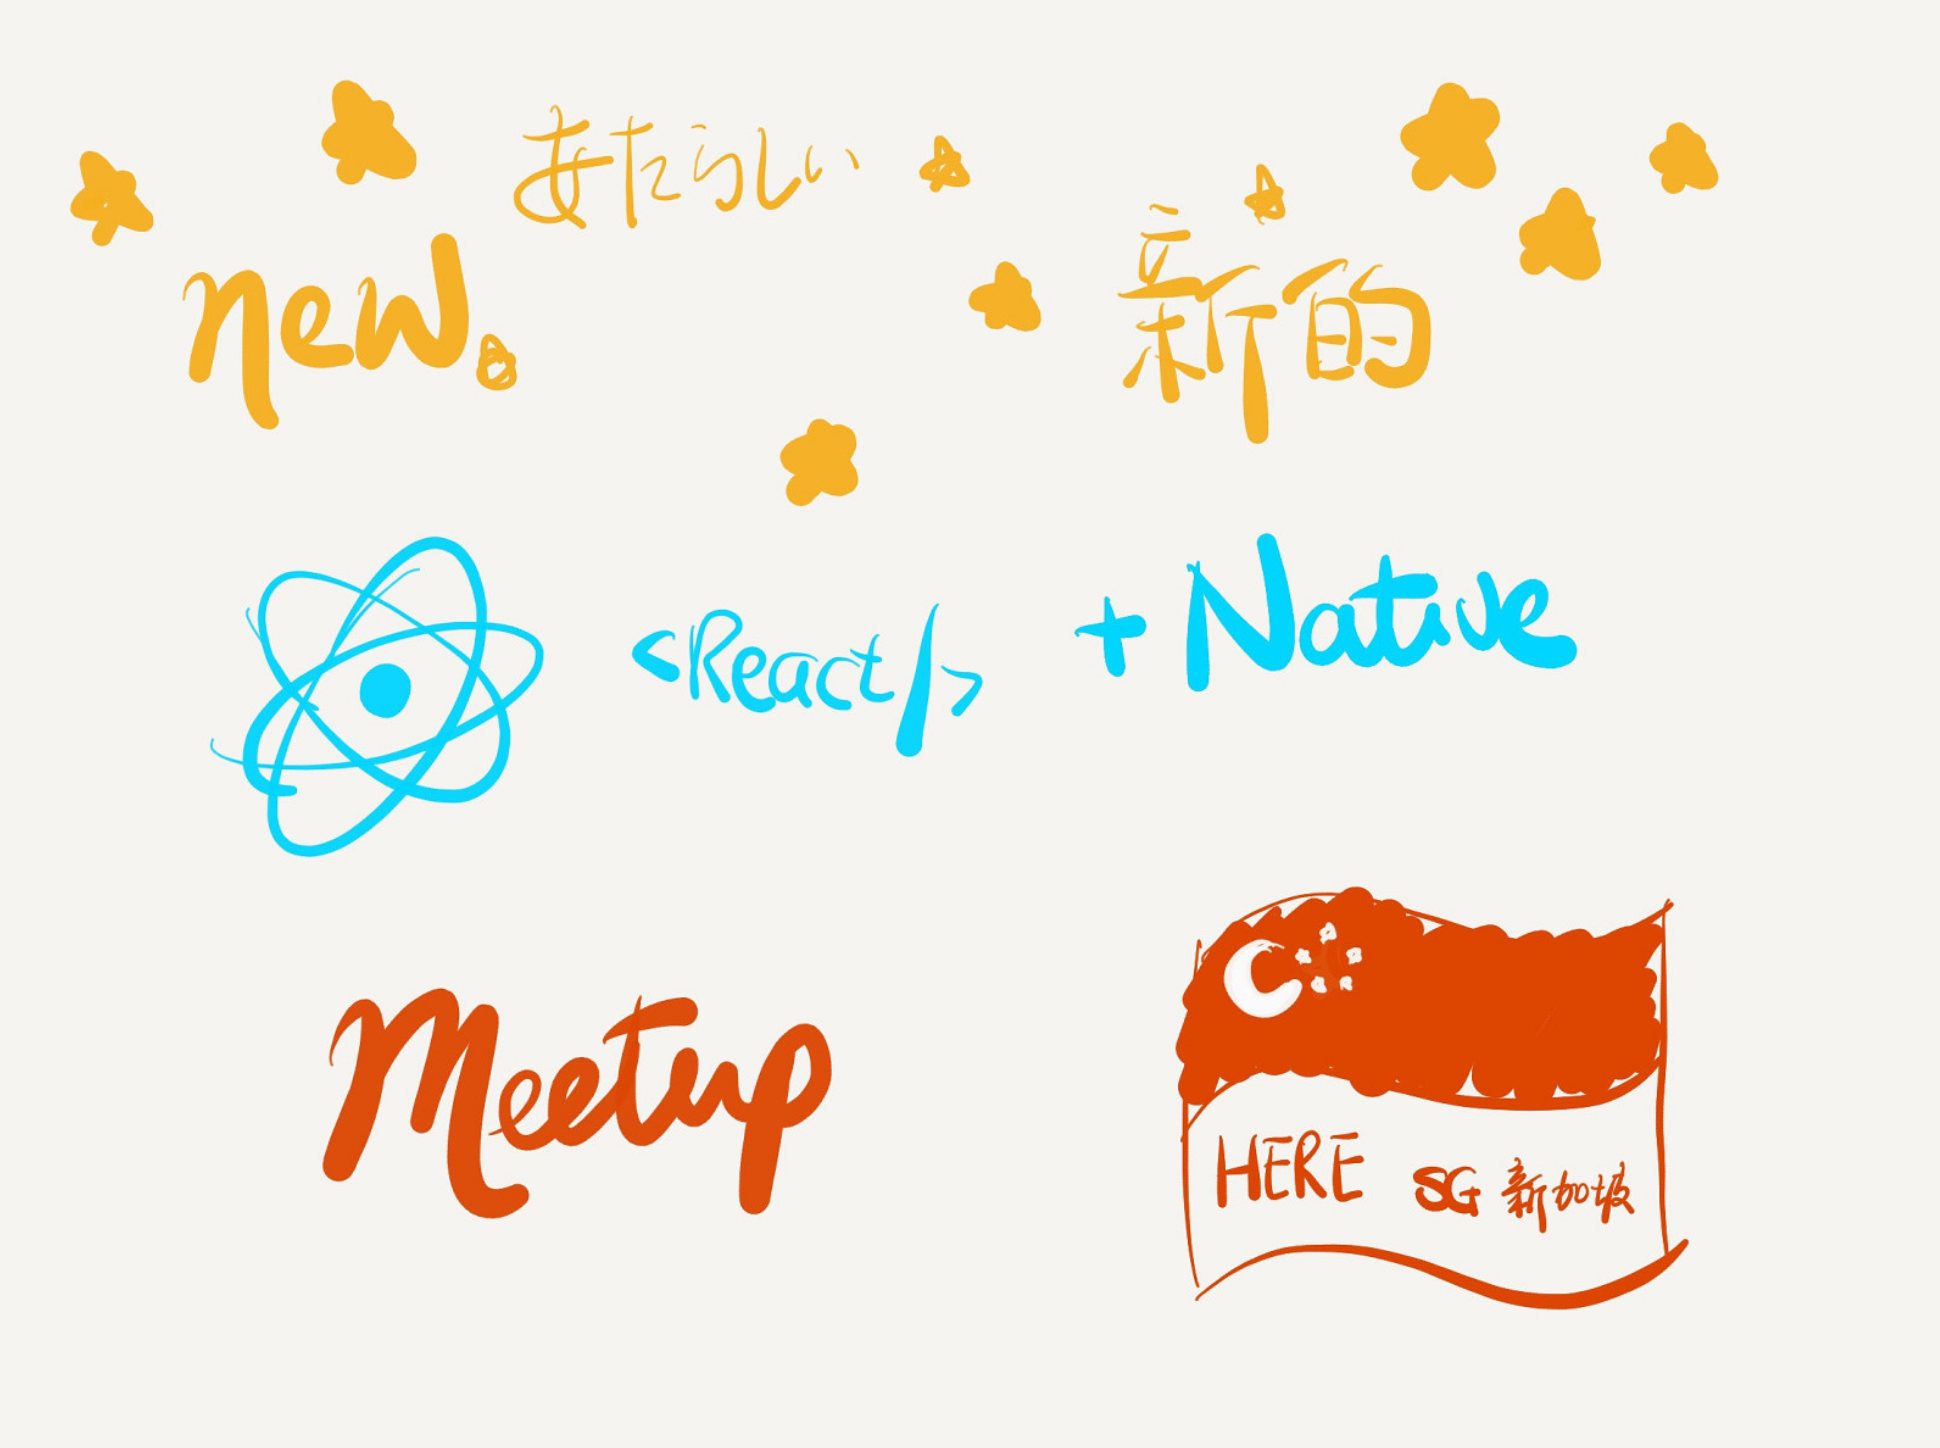 あたらしい
new.
新的
<React/>
+ Native
Meetup
HERE
SG 新加坡